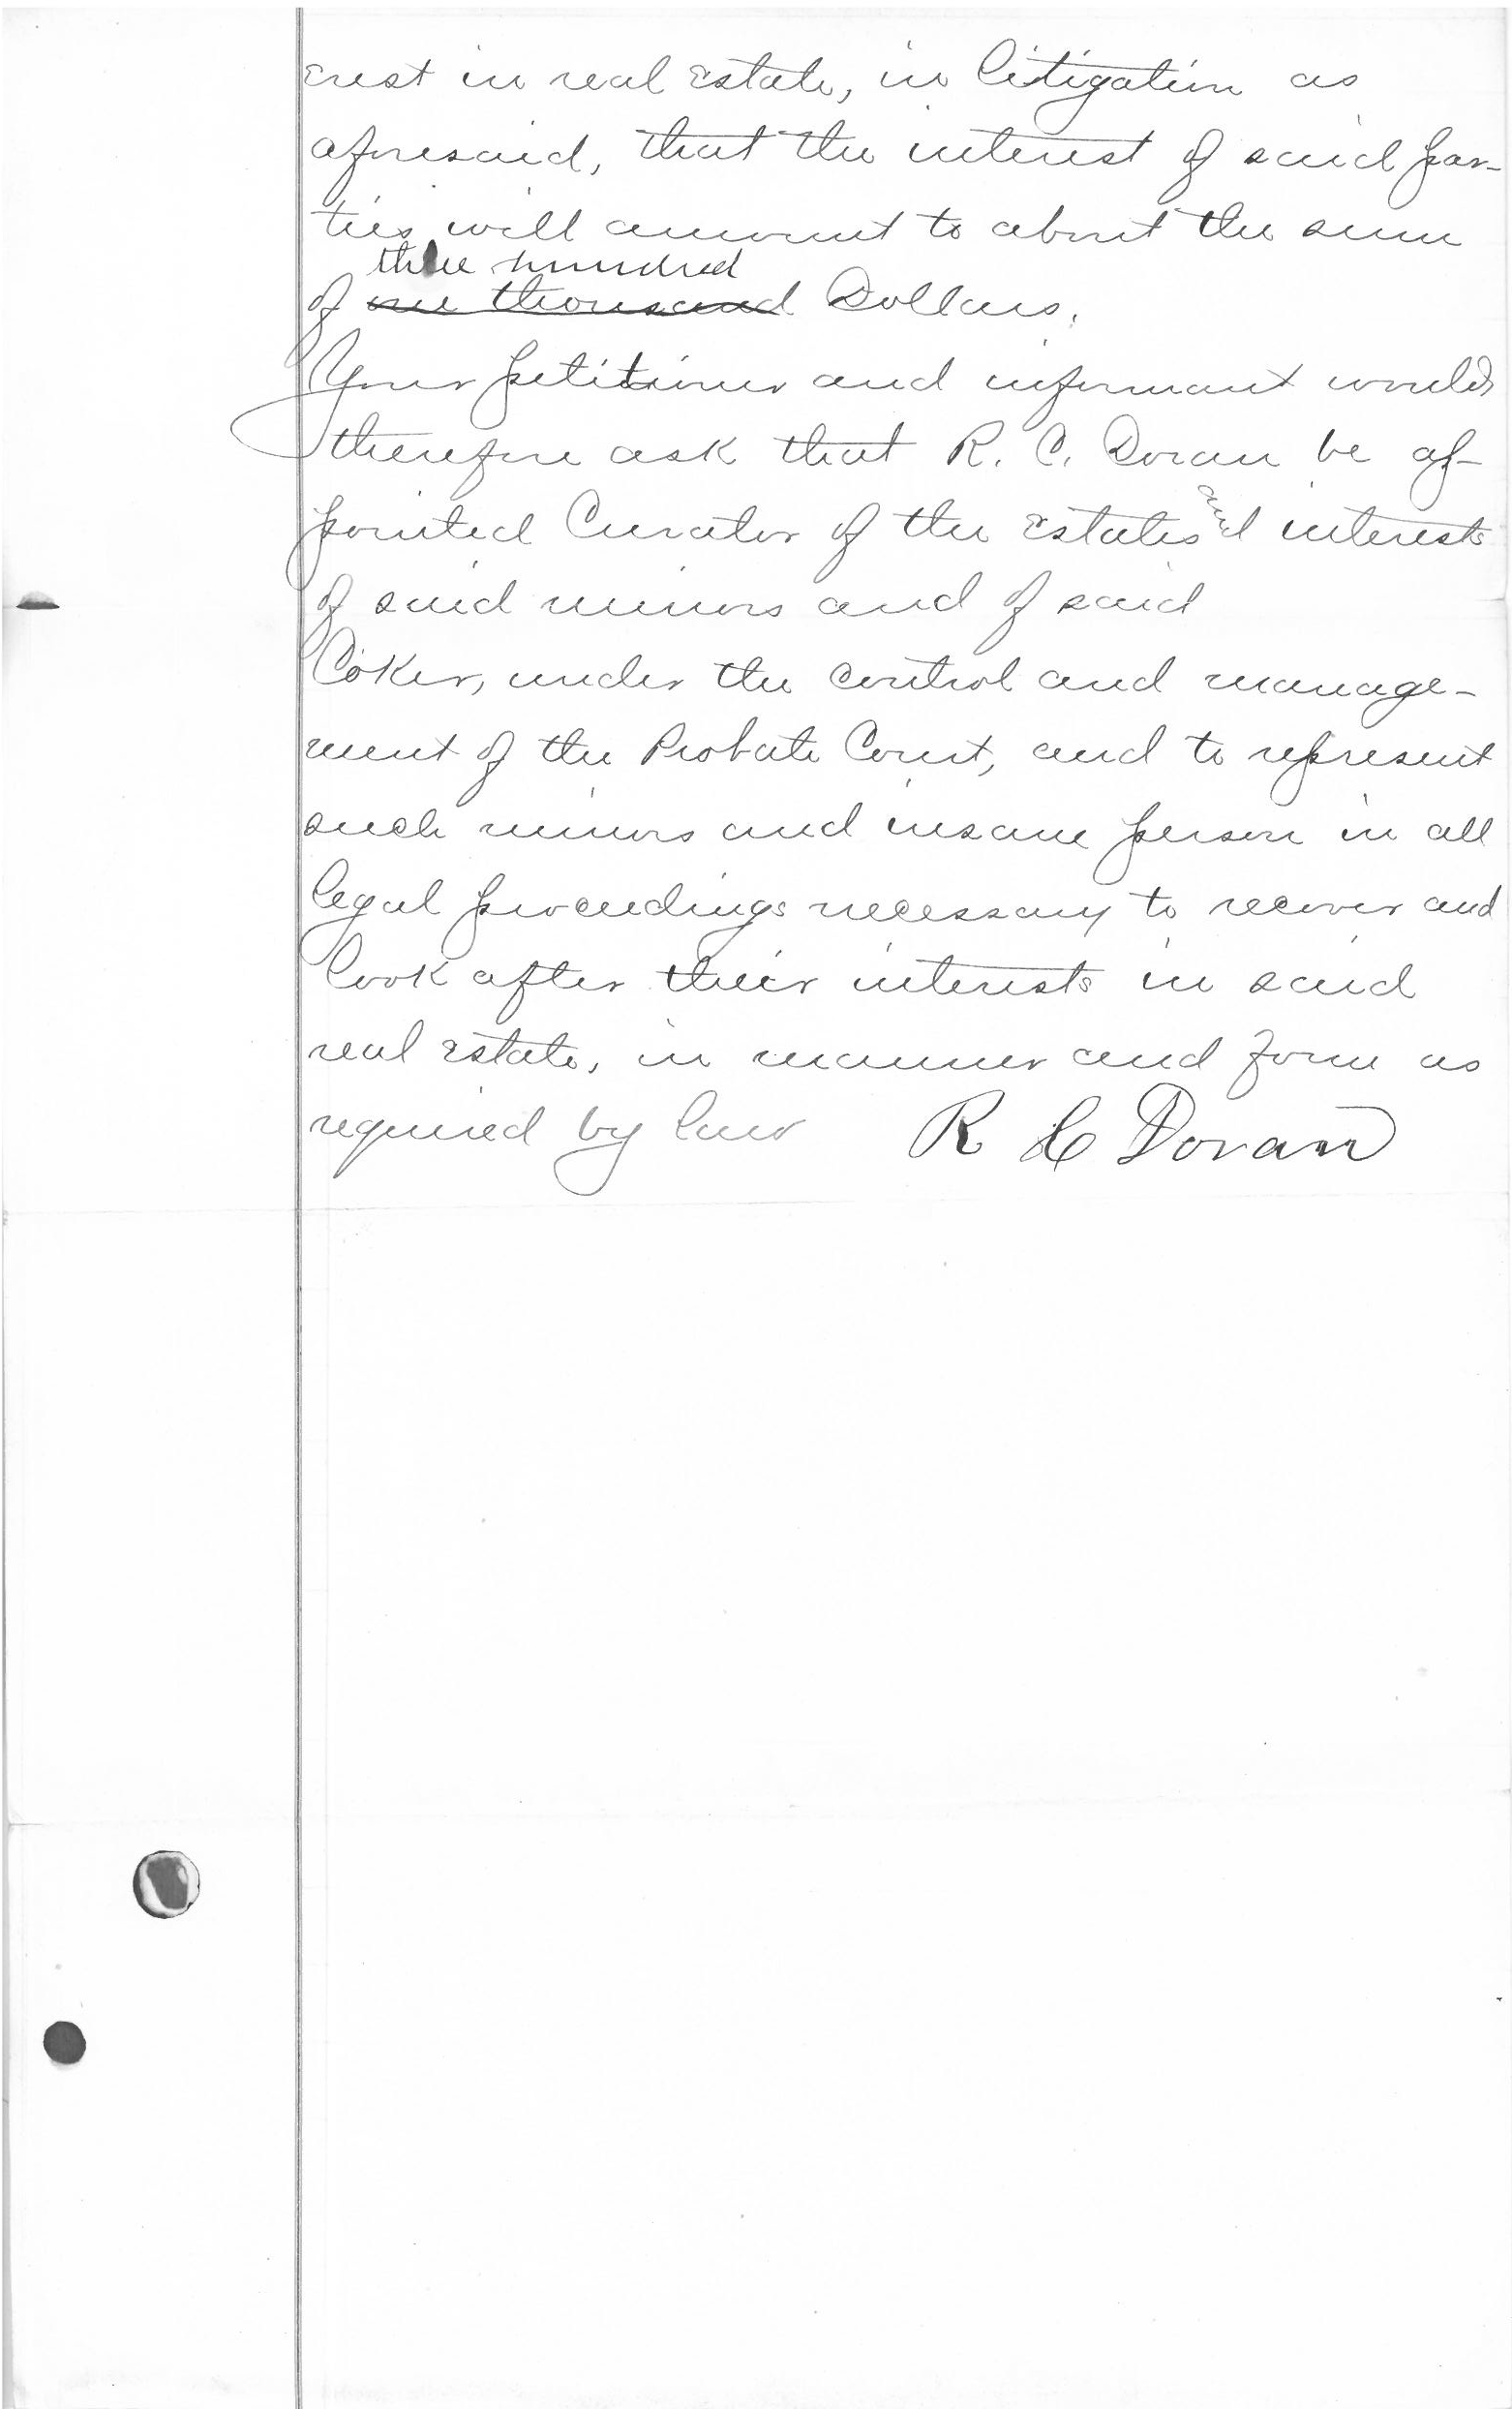 erest in real Estate, in litigation as
aforesaid, that the interest of said par-
ties will amount to about the sum
three hundred
of one thousand Dollars.
Your petitioner and informant would
therefore ask that R. C. Doran be ap-
pointed Curator of the Estates and interests
of said minors and of said
Coker, under the control and manage-
ment of the Probate Court, and to represent
such minors and insane person in all
legal proceedings necessary to recover and
look after their interests in said
real Estate, in manner and form as
required by law R C Doran